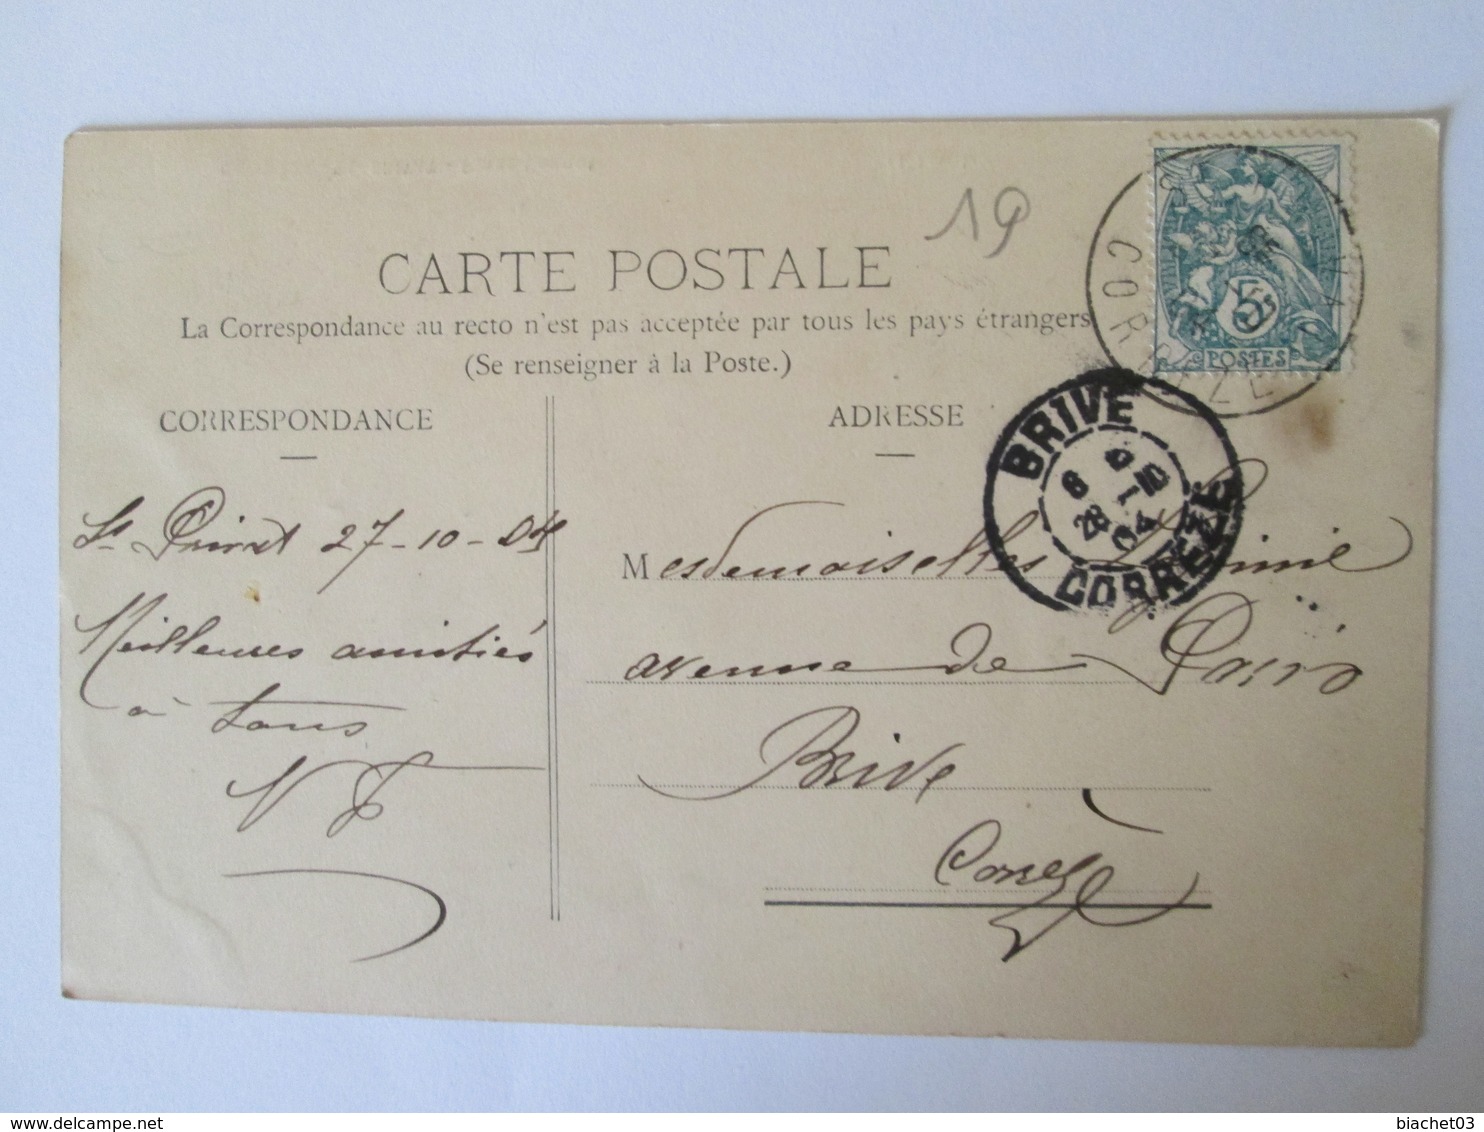 19
CARTE POSTALE
La Correspondance au recto n'est pas acceptée par tous les pays étrangers
(Se renseigner à la Poste.)
CORRESPONDANCE
ADRESSE
5
POSTES
CORREZE
BRIVE
CORRÈZE
St Privat 27-10-04
Meilleures amitiés
à tous
Mesdemoiselles
avenue de Paris
Brive
Corrèze
biachet03